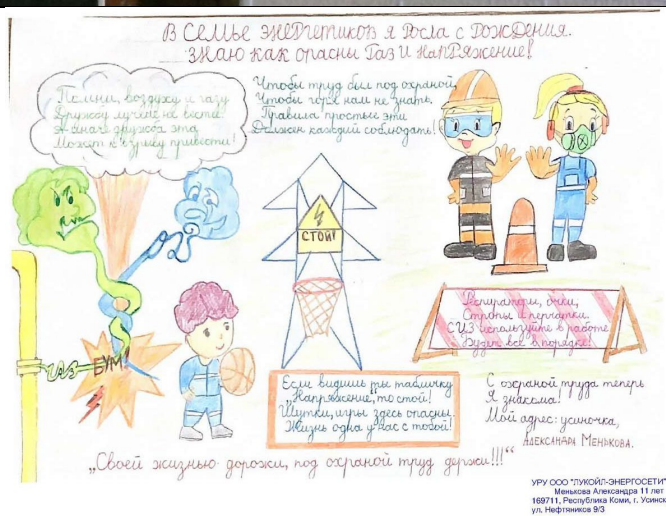 В СЕМЬЕ ЭНЕРГЕТИКОВ Я РОСЛА С РОЖДЕНИЯ.
ЗНАЮ КАК ОПАСНЫ ГАЗ И НАПРЯЖЕНИЕ!
Помни, воздуху и газу
Дружбу лучше не вести.
А иначе дружба эта
Может к взрыву привести!
Чтобы труд был под охраной,
Чтобы горя нам не знать,
Правила простые эти
Должен каждый соблюдать!
СТОЙ!
Респираторы, очки,
Стропы и перчатки.
СИЗ используйте в работе
Будет всё в порядке!
ГАЗ
БУМ!
Если видишь ты табличку
„Напряжение", то стой!
Шутки, игры здесь опасны.
Жизнь одна у нас с тобой!
С охраной труда теперь
Я знакома!
Мой адрес: усиночка,
АЛЕКСАНДРА МЕНЬКОВА.
„Своей жизнью дорожи, под охраной труд держи!!!"
УРУ ООО "ЛУКОЙЛ-ЭНЕРГОСЕТИ"
Менькова Александра 11 лет
169711, Республика Коми, г. Усинск
ул. Нефтяников 9/3